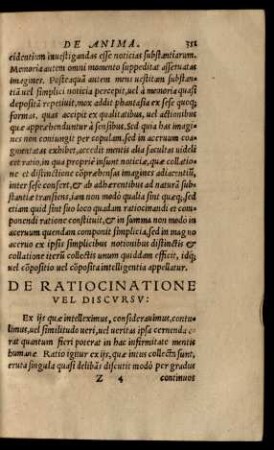 DE ANIMA. 352
cidentium inuestigandas esse noticias substantiarum.
Memoria autem omni momento suppeditat asseruatas
imagines. Postea quã autem mens uestitam substan-
tiã uel simplici noticia percepit, uel à memoria quasi
depositã repetiuit, mox addit phantasia ex sese quoq;
formas, quas accipit ex qualitatibus, uel actionibus
quæ apprehenduntur à sensibus. Sed quia has imagi-
nes non coniungit per copulam, sed in aceruum coa-
gmentatas exhibet, accedit mentis alia facultas uideli
cet ratio, in qua propriè insunt noticiæ, quæ collatio
ne et distinctione cõprehensas imagines adiacentiũ,
inter sese confert, & ab adhærentibus ad naturã subst-
antiæ transiens, iam non modò qualia sint quæq;, sed
etiam quid sint suo loco quadam ratiocinandi et com
ponendi ratione constituit, & in summa non modò in
aceruum quendam componit simplicia, sed in mag no
aceruo ex ipsis simplicibus notionibus distinctis &
collatione iterũ collectis unum quiddam efficit, idq;
uel cõpositio uel cõposita intelligentia appellatur.
DE RATIOCINATIONE
VEL DISCVRSV:
Ex ijs quæ intelleximus, considerauimus, contu-
limus, uel similitudo ueri, uel ueritas ipsa cernenda e-
rat quantum fieri poterat in hac infirmitate mentis
humanæ. Ratio igitur ex ijs, quæ intus collecta sunt,
eruta singula quasi delibãs discutit modò per gradus
Z 4 continuos